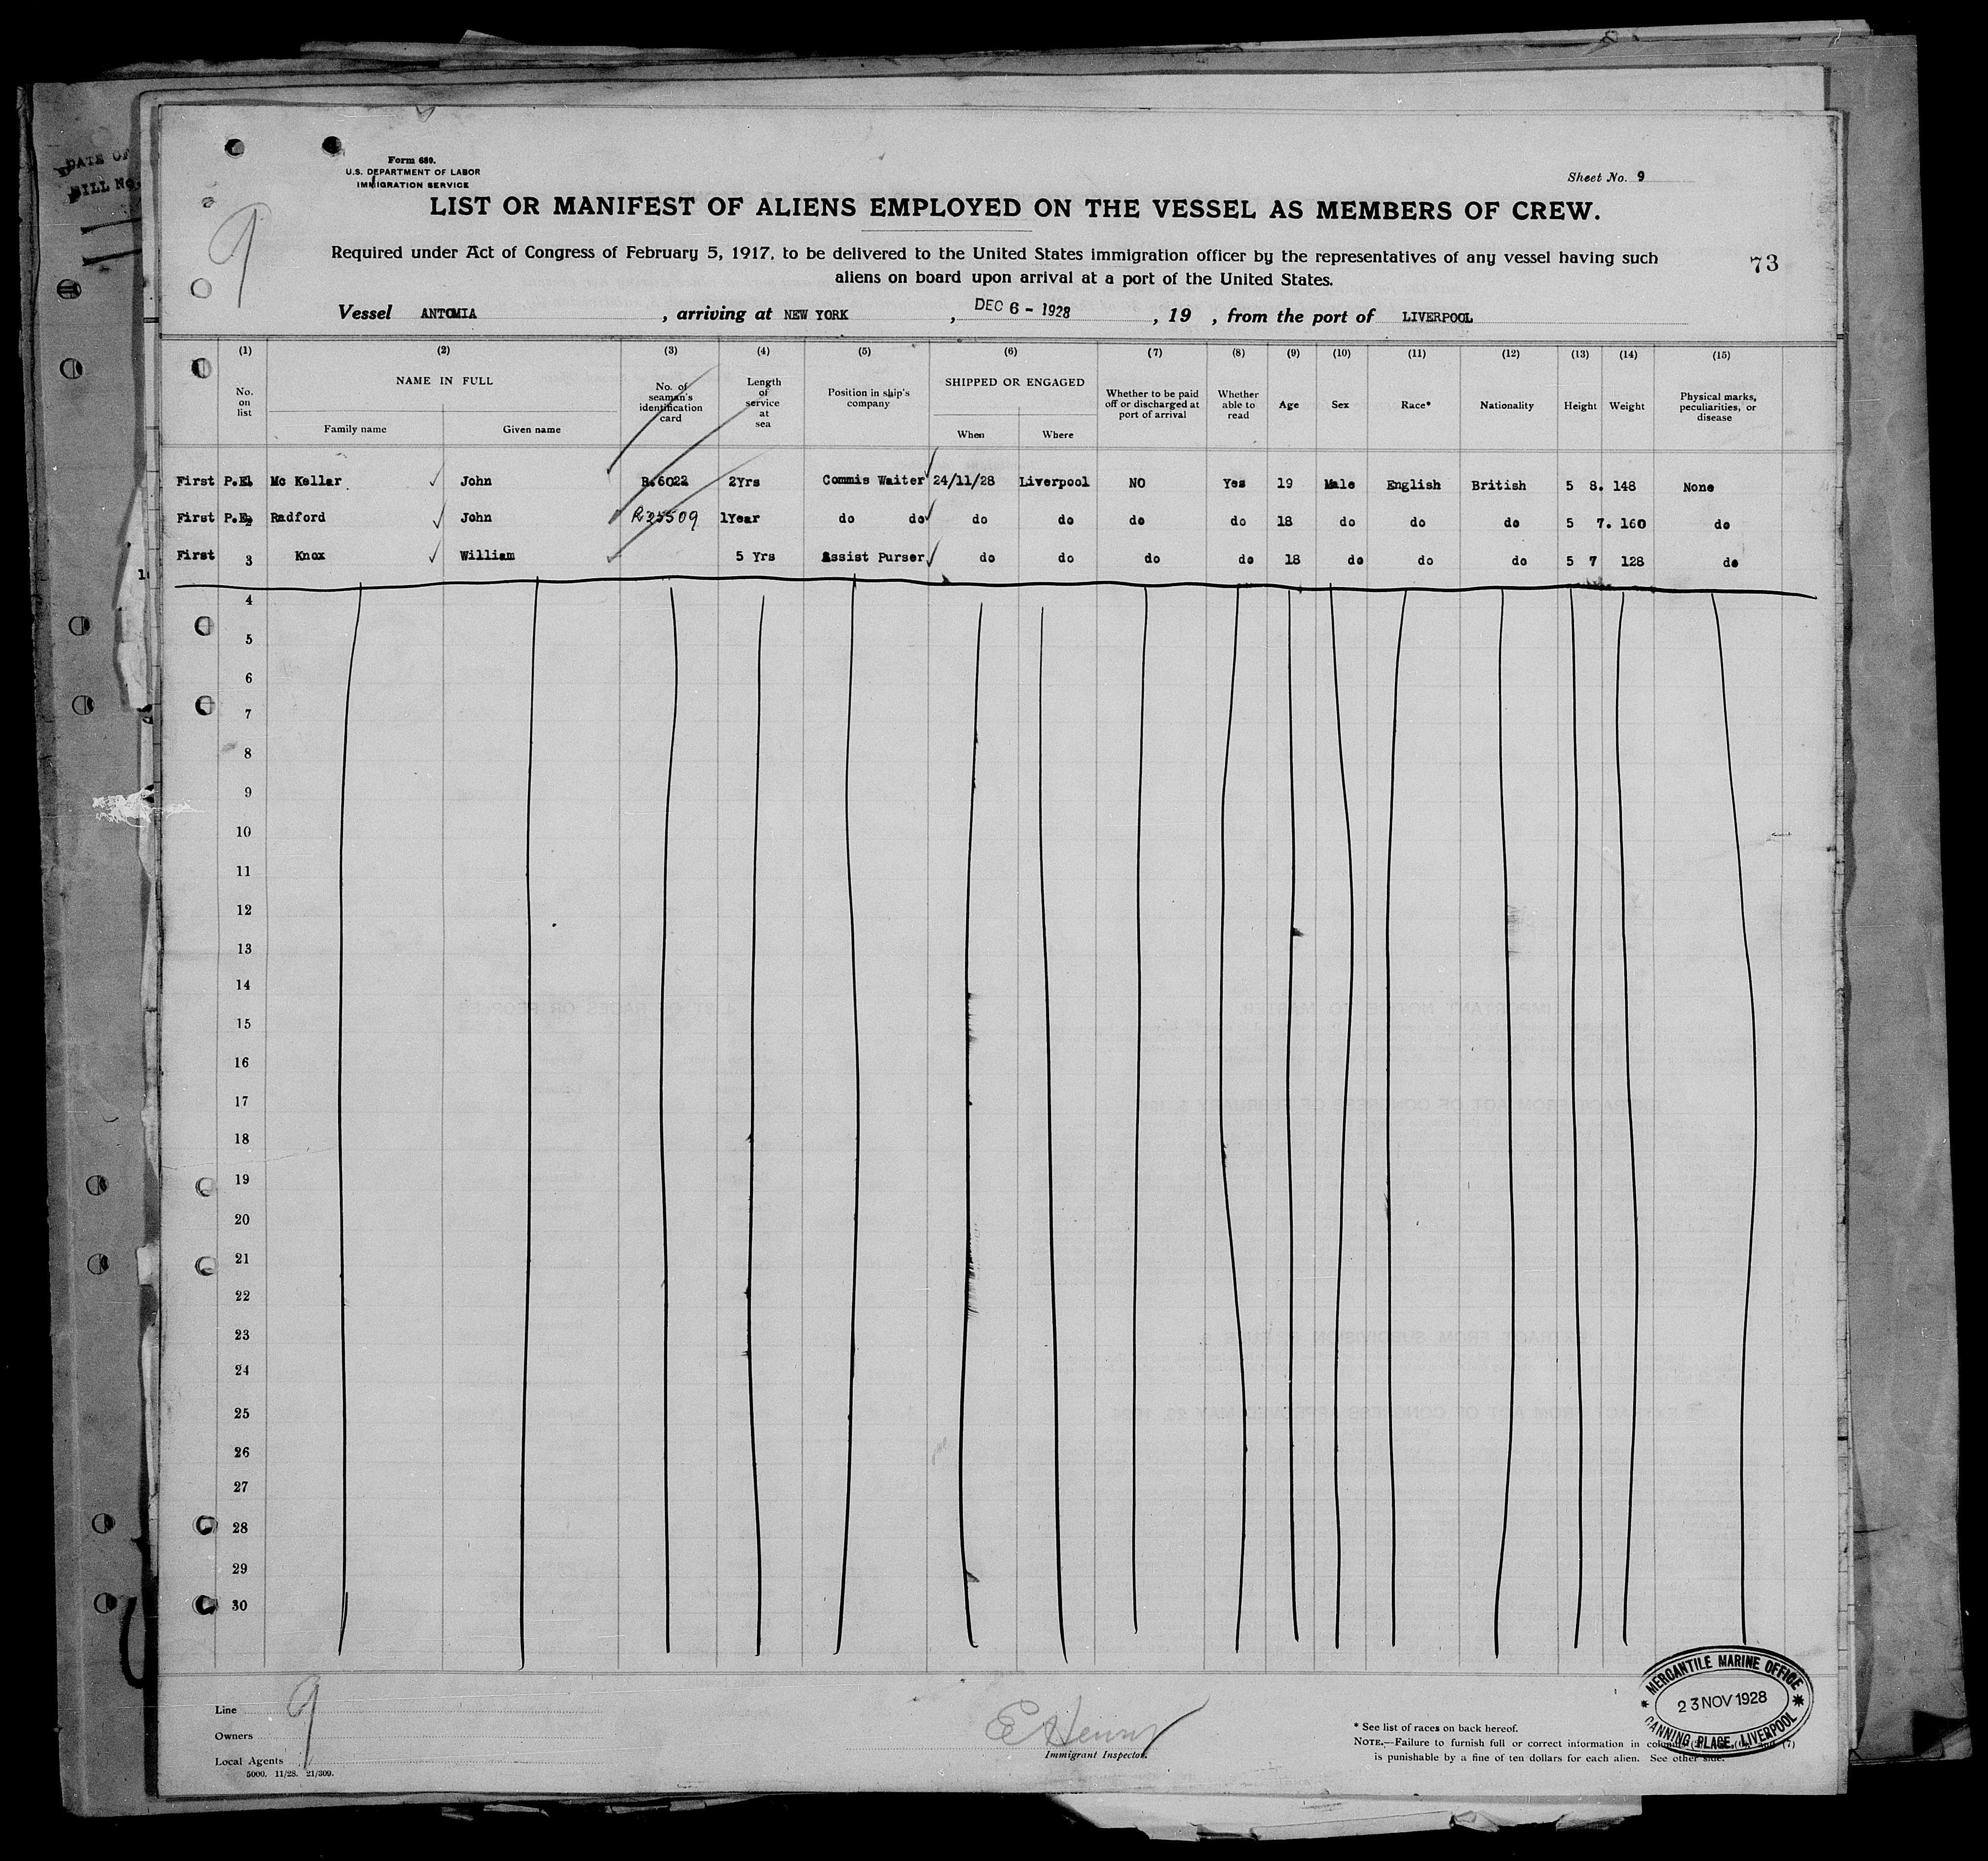 DATE OF
BILL No.
Form 689.
U.S. DEPARTMENT OF LABOR
IMMIGRATION SERVICE
Sheet No. 9
LIST OR MANIFEST OF ALIENS EMPLOYED ON THE VESSEL AS MEMBERS OF CREW.
9
Required under Act of Congress of February 5, 1917, to be delivered to the United States immigration officer by the representatives of any vessel having such
aliens on board upon arrival at a port of the United States.
73
Vessel ANTOMIA , arriving at NEW YORK , DEC 6 - 1928 , 19 , from the port of LIVERPOOL
(1) (2) (3) (4) (5) (6) (7) (8) (9) (10) (11) (12) (13) (14) (15)
No. on list NAME IN FULL Family name Given name No. of seaman's identification card Length of service at sea Position in ship's company SHIPPED OR ENGAGED When Where Whether to be paid off or discharged at port of arrival Whether able to read Age Sex Race* Nationality Height Weight Physical marks, peculiarities, or disease
First P.E. Mc Kellar John B.6022 2Yrs Commis Waiter 24/11/28 Liverpool NO Yes 19 Male English British 5 8. 148 None
First P.E. 2 Radford John R35509 1Year do do do do do do 18 do do do 5 7. 160 do
First 3 Knox William 5 Yrs Assist Purser do do do do 18 do do do 5 7 128 do
4
5
6
7
8
9
10
11
12
13
14
15
16
17
18
19
20
21
22
23
24
25
26
27
28
29
30
Line 9
Owners
Local Agents
5000. 11/28. 21/309.
E Henry
Immigrant Inspector.
* See list of races on back hereof.
NOTE.—Failure to furnish full or correct information in columns (7)
is punishable by a fine of ten dollars for each alien. See other side.
MERCANTILE MARINE OFFICE
23 NOV 1928
CANNING PLACE, LIVERPOOL